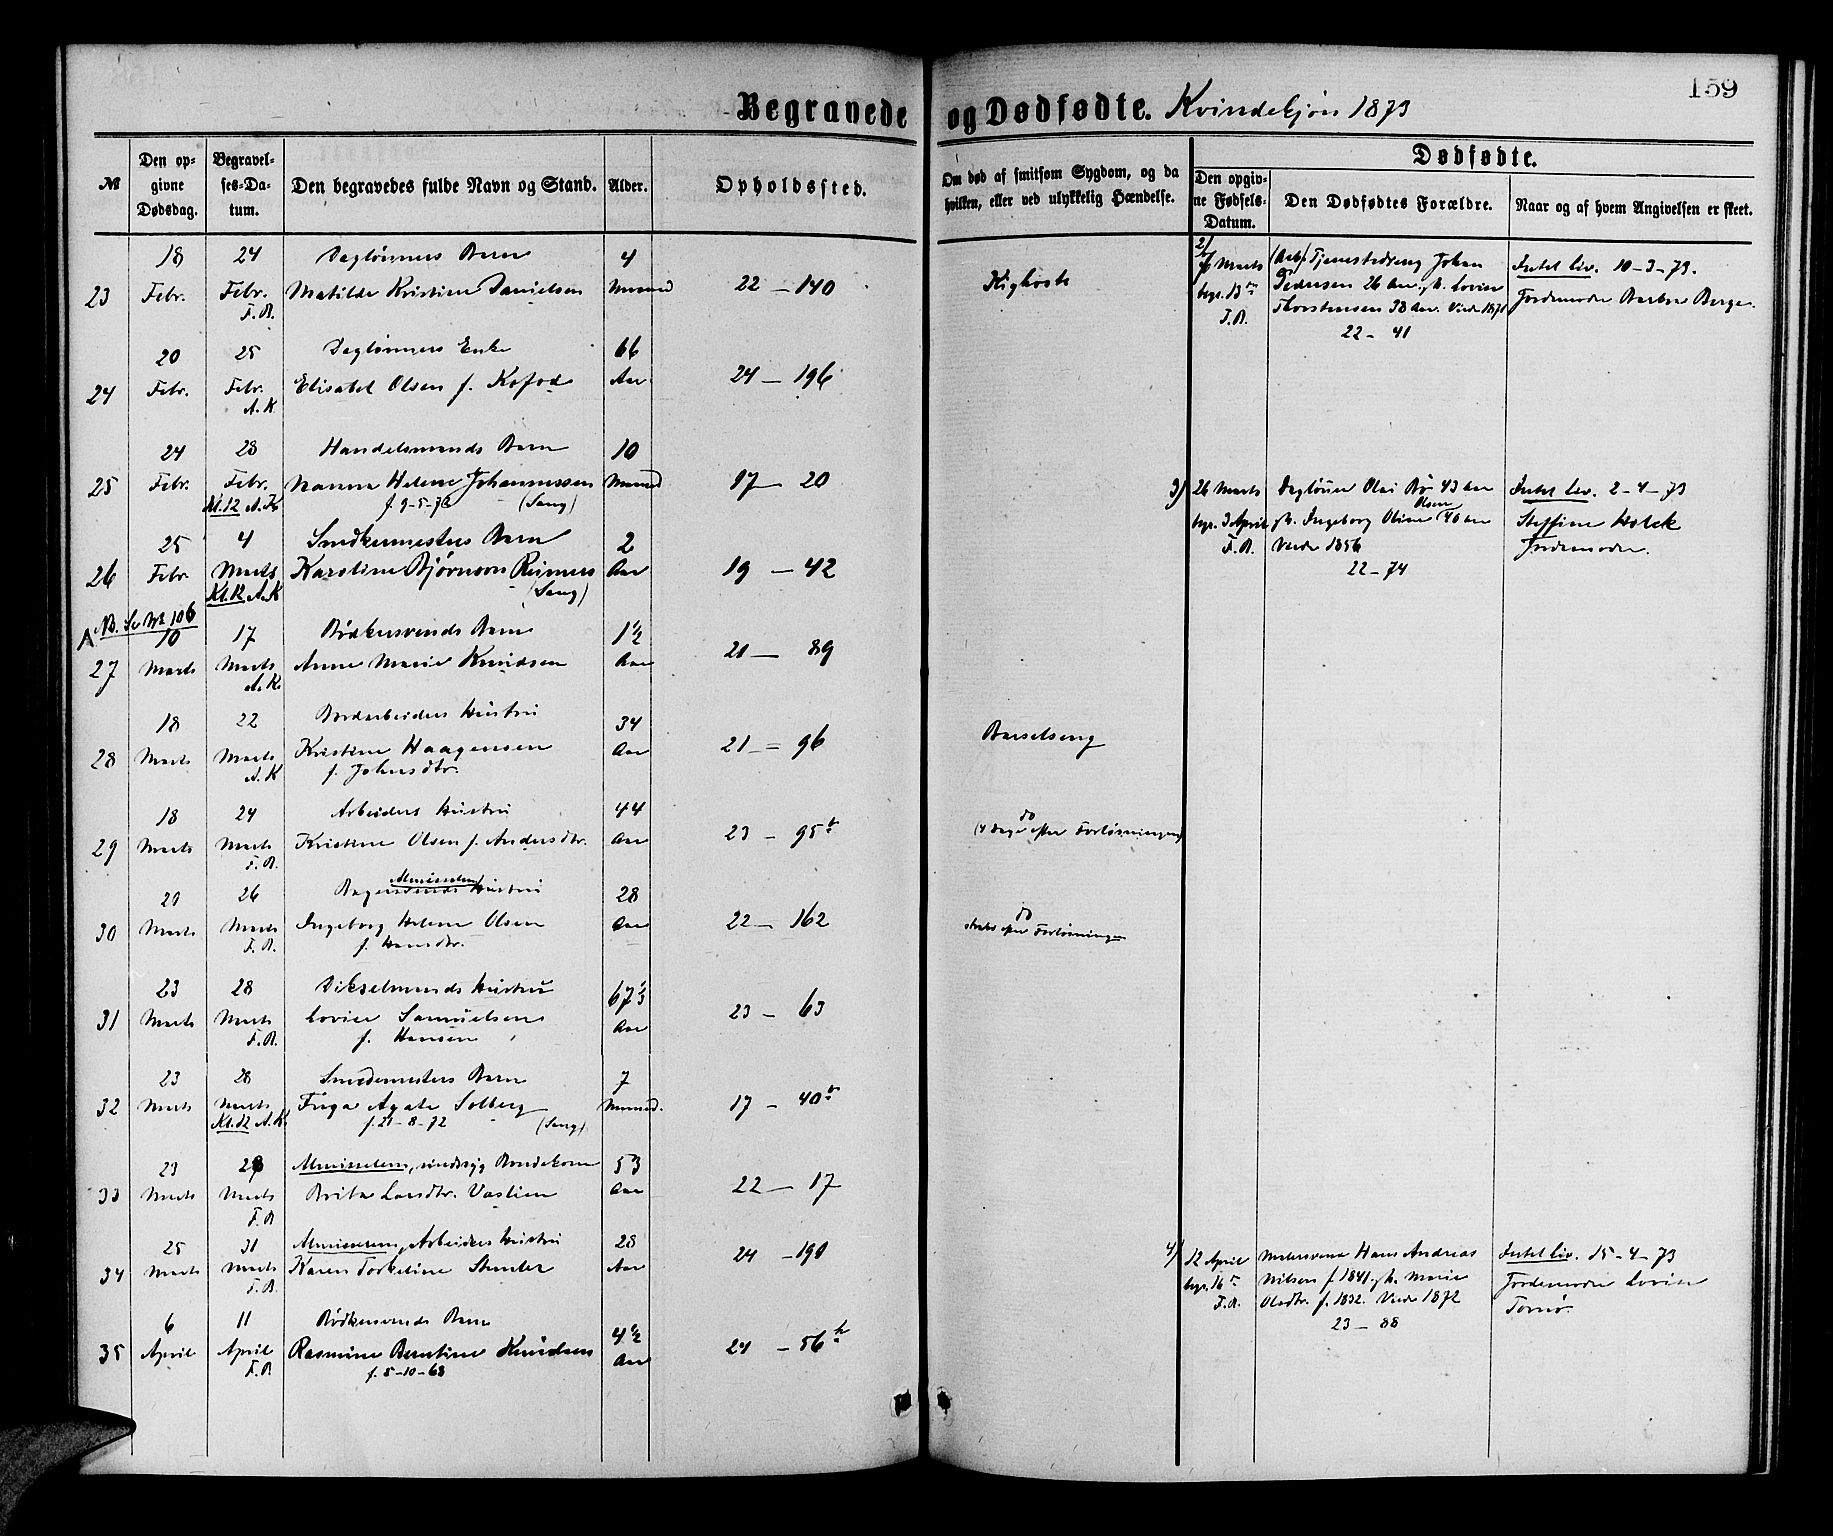 159
Begravede og Dødfødte. Kvindekjøn 1873
№
Den opgivne Dødsdag.
Begravelses-Datum.
Den begravedes fulde Navn og Stand.
Alder.
Opholdssted.
Om død af smitsom Sygdom, og da hvilken, eller ved ulykkelig Hændelse.
Dødfødte.
Den opgivne Fødsels-Datum.
Den Dødfødtes Forældre.
Naar og af hvem Angivelsen er skeet.
18 24 Daglønners Barn 4
23 Febr. Febr. Matilde Kristine Danielsen Maaned 22 — 140 Kighoste
F.B.
20 25 Daglønners Enke 66
24 Febr. Febr. Elisabet Olsen f. Kofod Aar 24 — 196
A.K.
24 28 Handelsmands Barn 10
25 Febr. Febr. Nanna Helene Johannessen Maaned 17 — 20
Kl.12 A.K. f. 9-5-72 (Sang)
25 4 Snedkermesters Barn 2
26 Febr Marts Karoline Bjørnson Reimers Aar 19 — 42
Kl.12 A.K (Sang)
NB. Se № 106
10 17 Bødkersvends Barn 1½
27 Marts Marts Anne Marie Knudsen Aar 21 — 89
A.K.
18 22 Bordarbeiders Hustru 34
28 Marts Marts Kristine Haagensen Aar 21 — 96 Barselseng
A.K f. Johnsdtr.
18 24 Arbeiders Hustru 44
29 Marts Marts Kristine Olsen f. Andersdtr. Aar 23 — 95b do
F.B. (4 Dage efter Forløsningen)
Almisselem
26 Bagersvends Hustru 28
30 Marts Marts Ingeborg Helene Olsen Aar 22 — 162 do
F.B. f. Hansdtr. straks efter Forløsningen
23 28 Hustru 67⅓
31 Marts Marts Lovise Samuelsen Aar 23 — 63
F.B. f. Hansen
23 28 Smedemesters Barn 7
32 Marts Marts Agate Solberg Maaned. 17 — 40b
Kl.12 A.K. f. 21-8-72 (Sang)
23 28 Almisselem, sindssyg Bondekone 53
33 Marts Marts Brita Larsdtr. Aar 22 — 17
F.B
25 31 Almisselem, Arbeiders Hustru 28
34 Marts Marts Karen Torkeline Aar 24 — 190
F.B.
6 11 Bødkersvends Barn 4½
35 April April Rasmine Berntine Knudsen Aar 24 — 56b
F.B f. 5-10-68
2/ 7 Marts (Arb) Tjenestedreng Johan Intet liv. 10-3-73.
begr. 13 Pedersen 26 Aar. gh. Lovise Jordemoder Barbra Berge.
F.B. Thorstensen 38 Aar. Viede 1871
22 — 41
3) 26 Marts Daglønner Olai Bø 43 Aar Intet liv. 2-4-73
begr. 3 April gh. Ingeborg Oline Olsen 40 Aar Steffine Holck
F.B. Viede 1856 Jordemoder.
22 — 74
4) 12 April Malersvend Hans Andreas Intet liv. 15-4-73
begr. 16 Nilsen f. 1841. gh. Marie Jordemoder Lovise
F.B. Olsdtr. f. 1832. Viede 1872 Tornø.
23 — 88